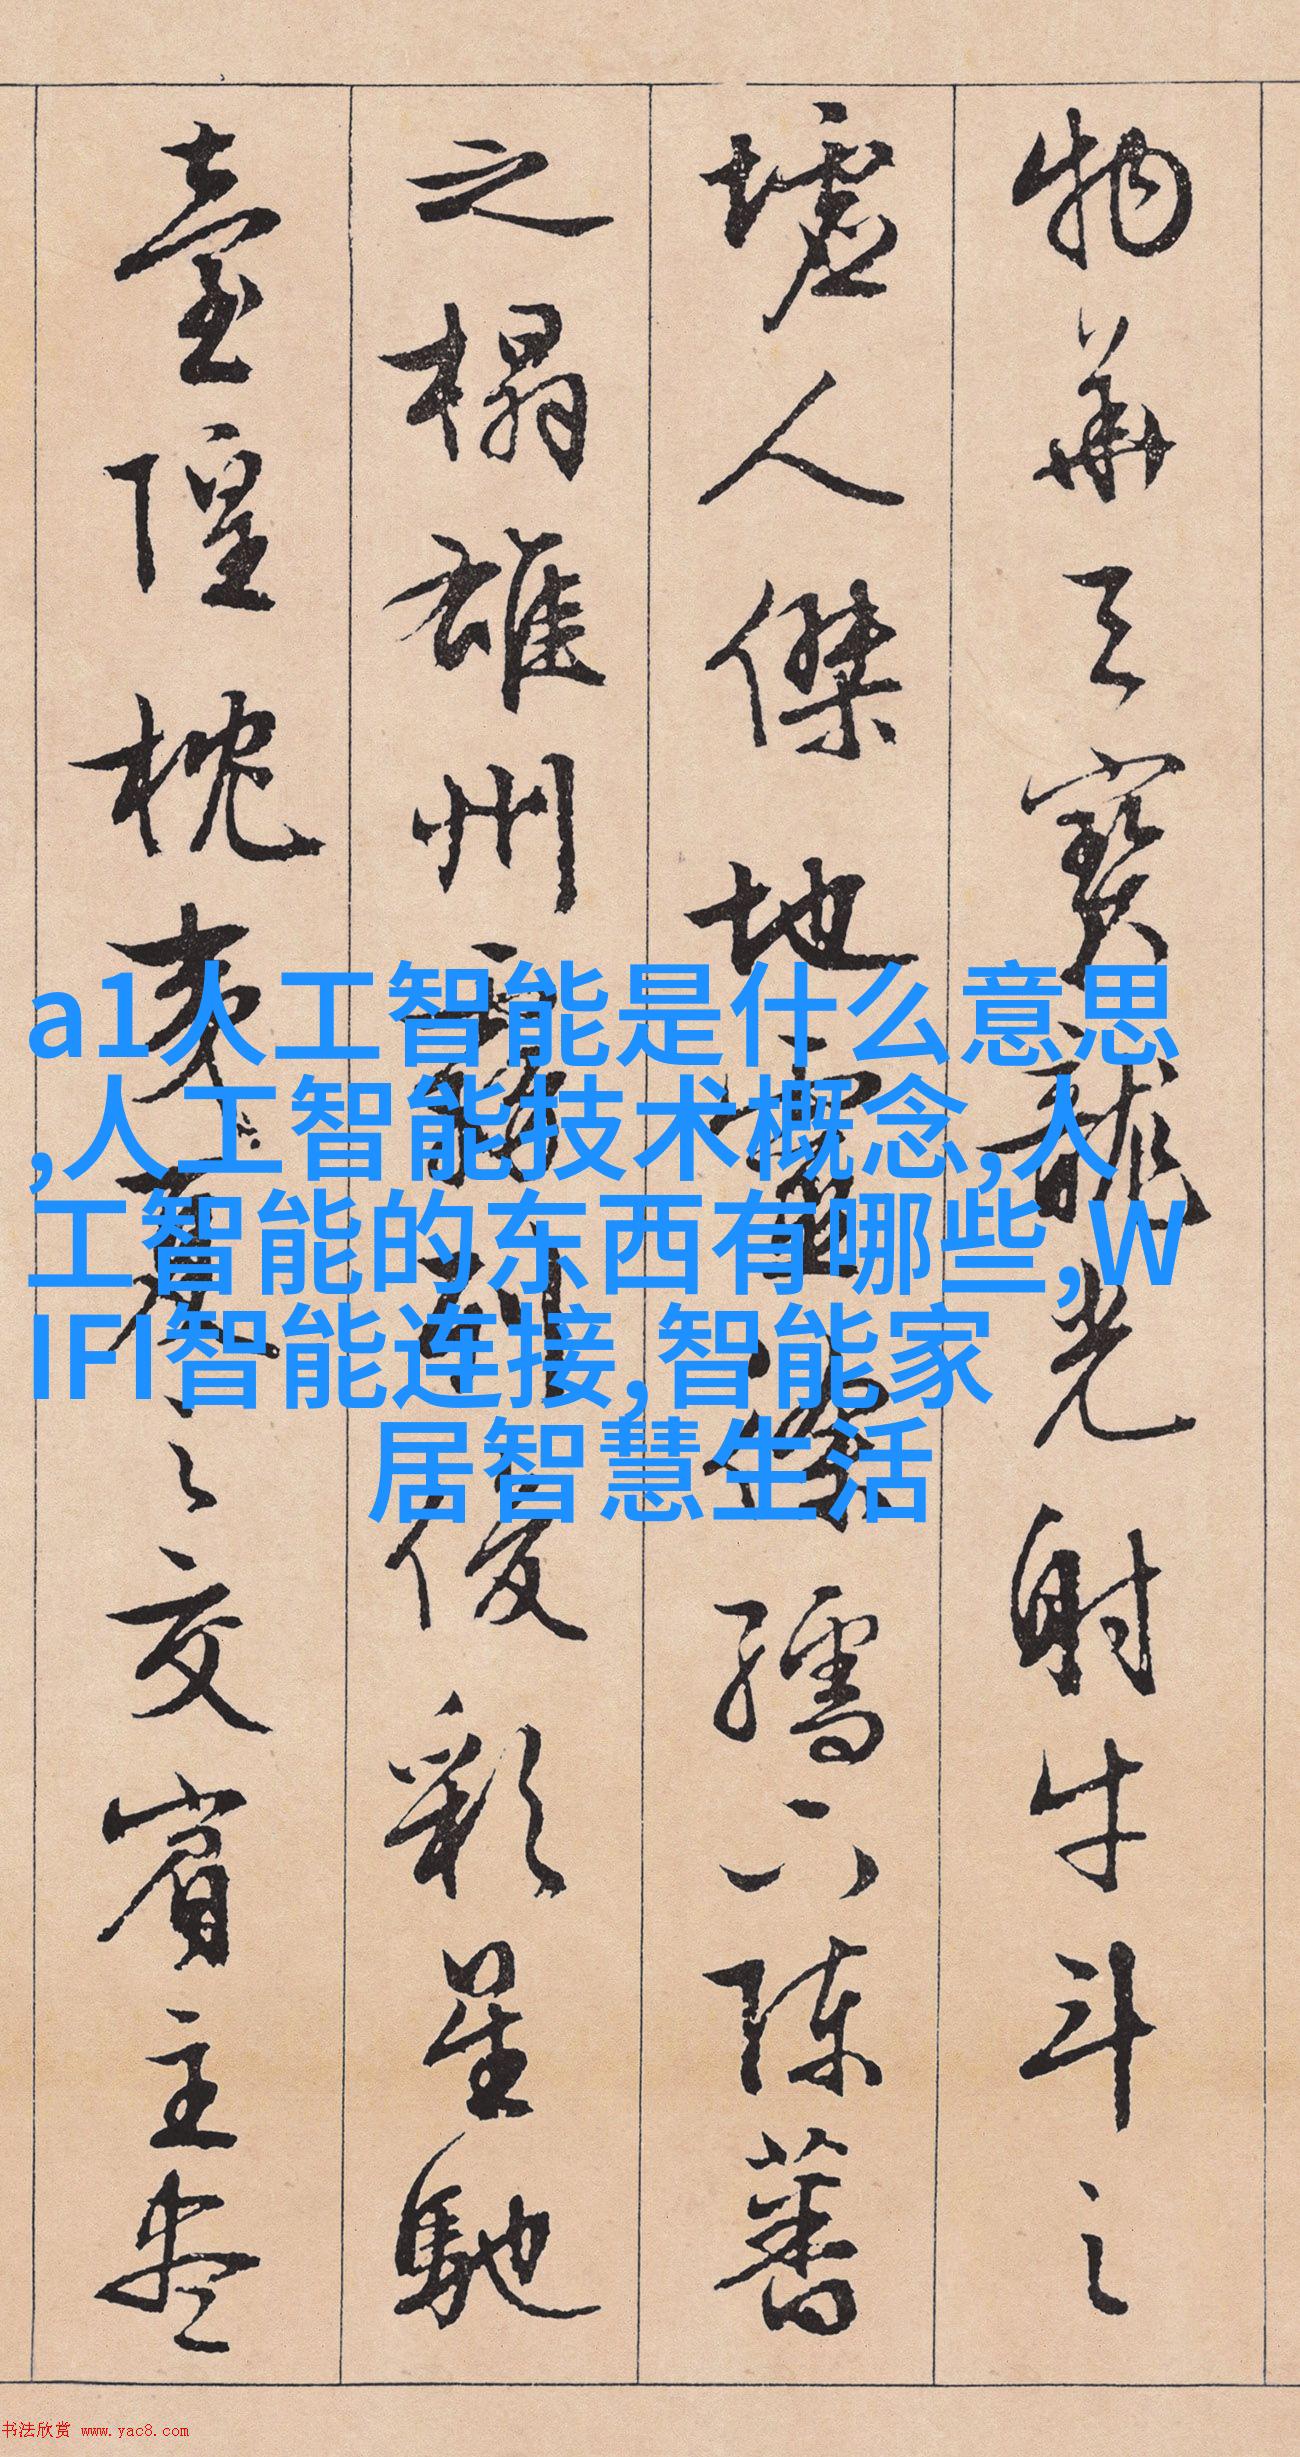 物華天寶龍光射牛斗之
墟人傑地靈徐孺下陳蕃
之榻雄州霧列俊彩星馳
臺隍枕夷夏之交賓主盡
a1人工智能是什么意思
,人工智能技术概念,人
工智能的东西有哪些,W
IFI智能连接,智能家
居智慧生活
书法欣赏 www.yac8.com